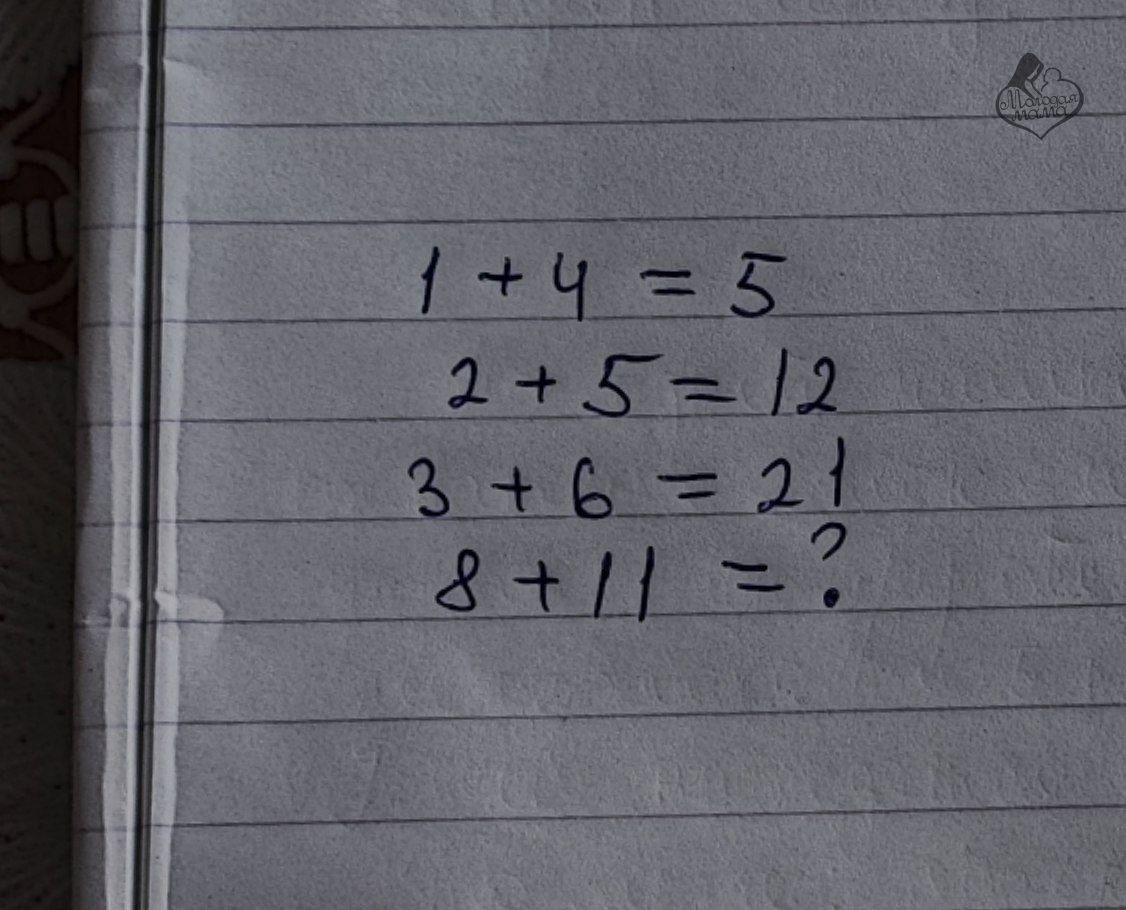 Молодая
мама
1 + 4 = 5
2 + 5 = 12
3 + 6 = 21
8 + 11 = ?